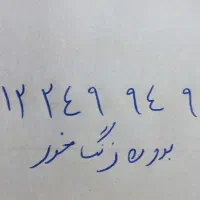 ۱۲ ۲۴۹ ۹۴ ۹
بدوه زنگ خور